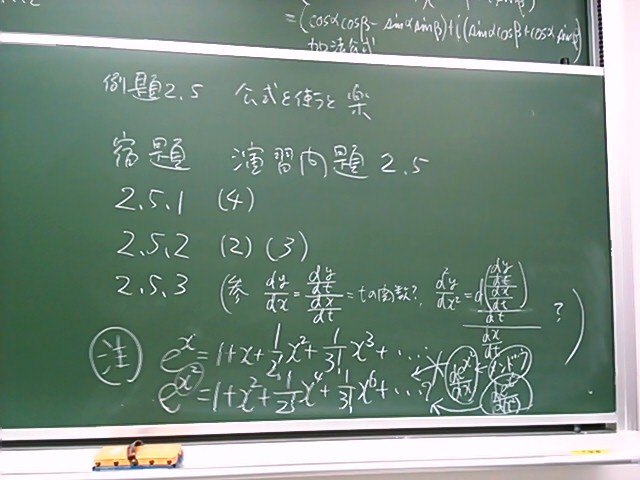 =(cosαcosβ-sinαsinβ)+i(sinαcosβ+cosαsinβ
加法公式
例題2.5 公式を使うと楽
宿題 演習問題 2.5
2.5.1 (4)
2.5.2 (2) (3)
2.5.3 (参 dy/dx = (dy/dt)/(dx/dt) = tの関数?, d²y/dx² = (d((dy/dt)/(dx/dt))/dt)/(dx/dt) ? )
注 e^x = 1+x+1/2! x²+1/3! x³+....
e^x² = 1+x²+1/2! x⁴+1/3! x⁶+....?
de^x²/dx